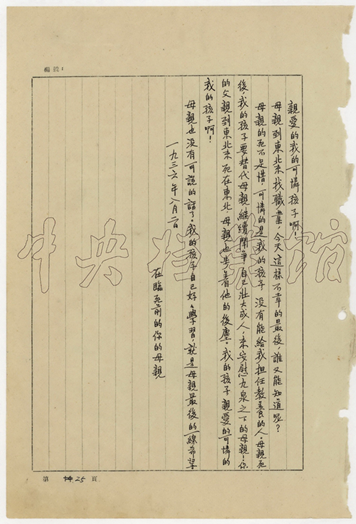 親愛的我的可憐孩子啊！
母親到東北來找職業，今天這樣不幸的最後，誰又能知道呢？
母親的死不足惜，可憐的是我的孩子，沒有能給我担任教養的人。母親死
後，我的孩子要替代母親繼續鬥爭，自己壯大成人，來安慰九泉之下的母親！你
的父親到東北來死在東北，母親也步着他的後塵。我的孩子，親愛的可憐的
我的孩子啊！
母親也沒有可說的話了，我的孩子自己好好學習，就是母親最後的一線希望。
一九三六年八月二日
在臨死前的你的母親
中央档案館
第 25 頁